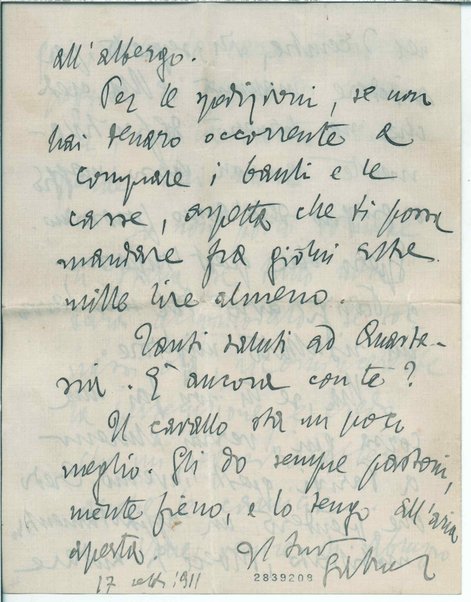 all'albergo.
Per le spedizioni, se non
hai denaro occorrente a
comprare i bauli e le
casse, aspetta che ti possa
mandare fra giorni altre
mille lire almeno.
Tanti saluti ad
È ancora con te?
Il cavallo sta un poco
meglio. Gli do sempre pastoni,
niente fieno, e lo tengo all'aria
aperta
Il tuo
Gabriel
17 sett. 1911
2839209